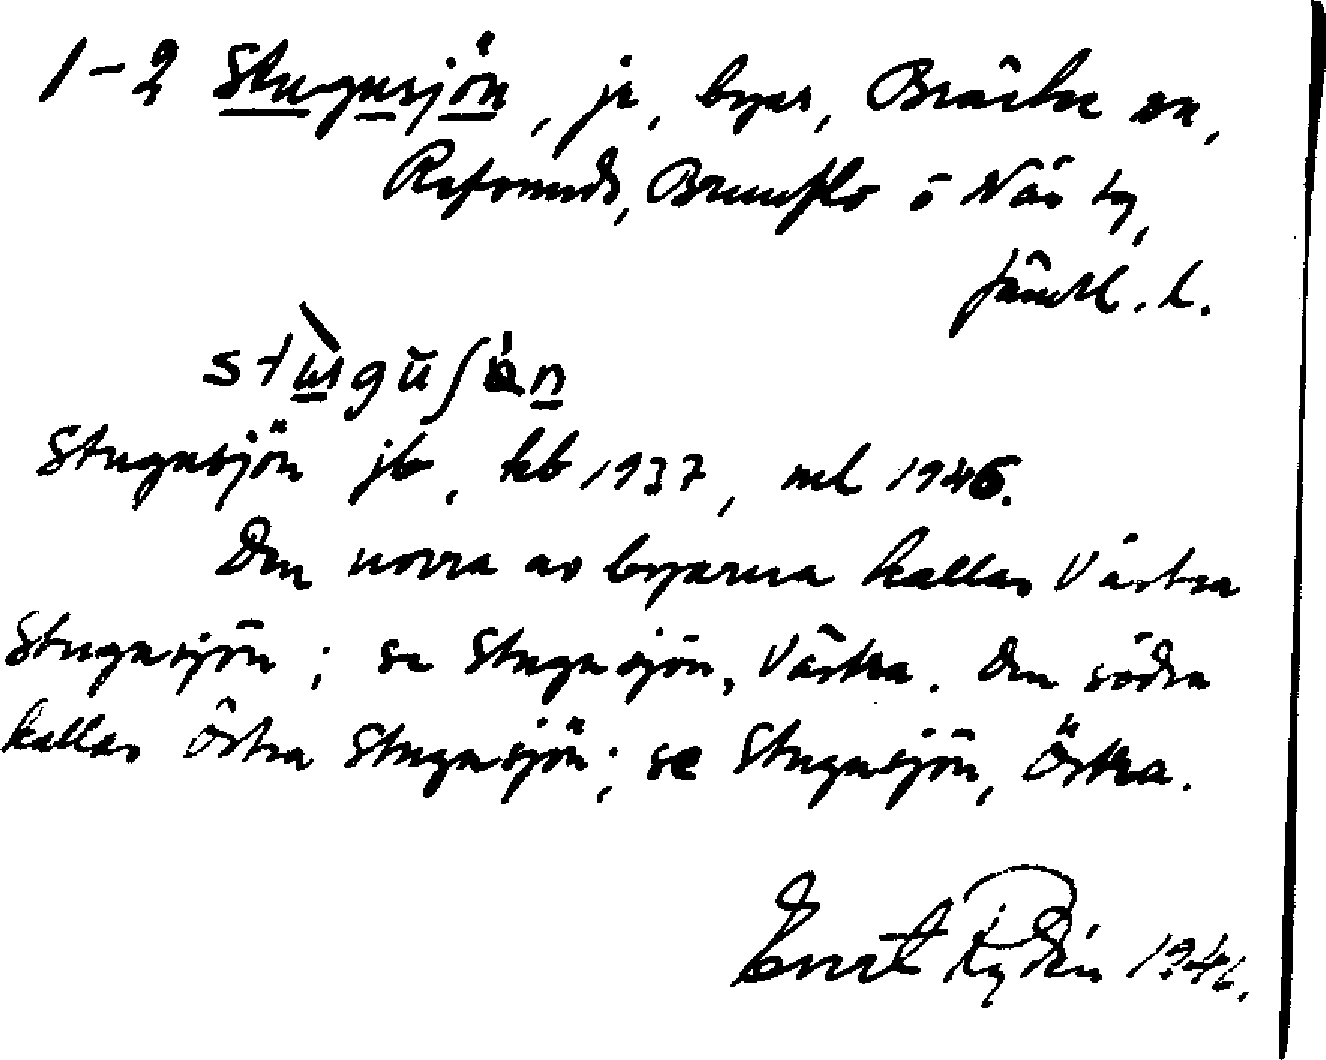 1-2 Stugusjön, je, byar, Bräcke sn,
Refsunds, Brunflo o Näs tg,
Jämtl. l.
Stugusjön jb, kb 1937, ml 1946.
Den norra av byarna kallas Västra
Stugusjön; se Stugusjön, Västra. Den södra
kallas Östra Stugusjön; se Stugusjön, Östra.
Evert Rydén 1946.